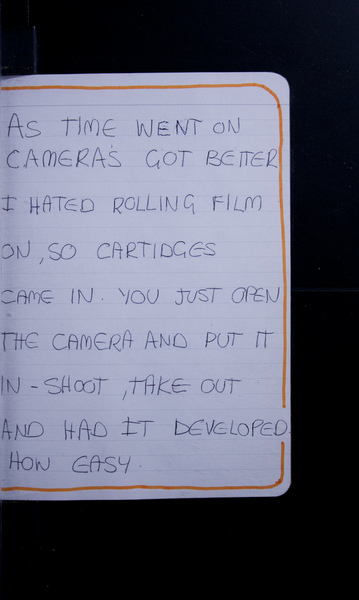 AS TIME WENT ON
CAMERA'S GOT BETTER
I HATED ROLLING FILM
ON, SO CARTIDGES
CAME IN. YOU JUST OPEN
THE CAMERA AND PUT IT
IN - SHOOT, TAKE OUT
AND HAD IT DEVELOPED.
HOW EASY.